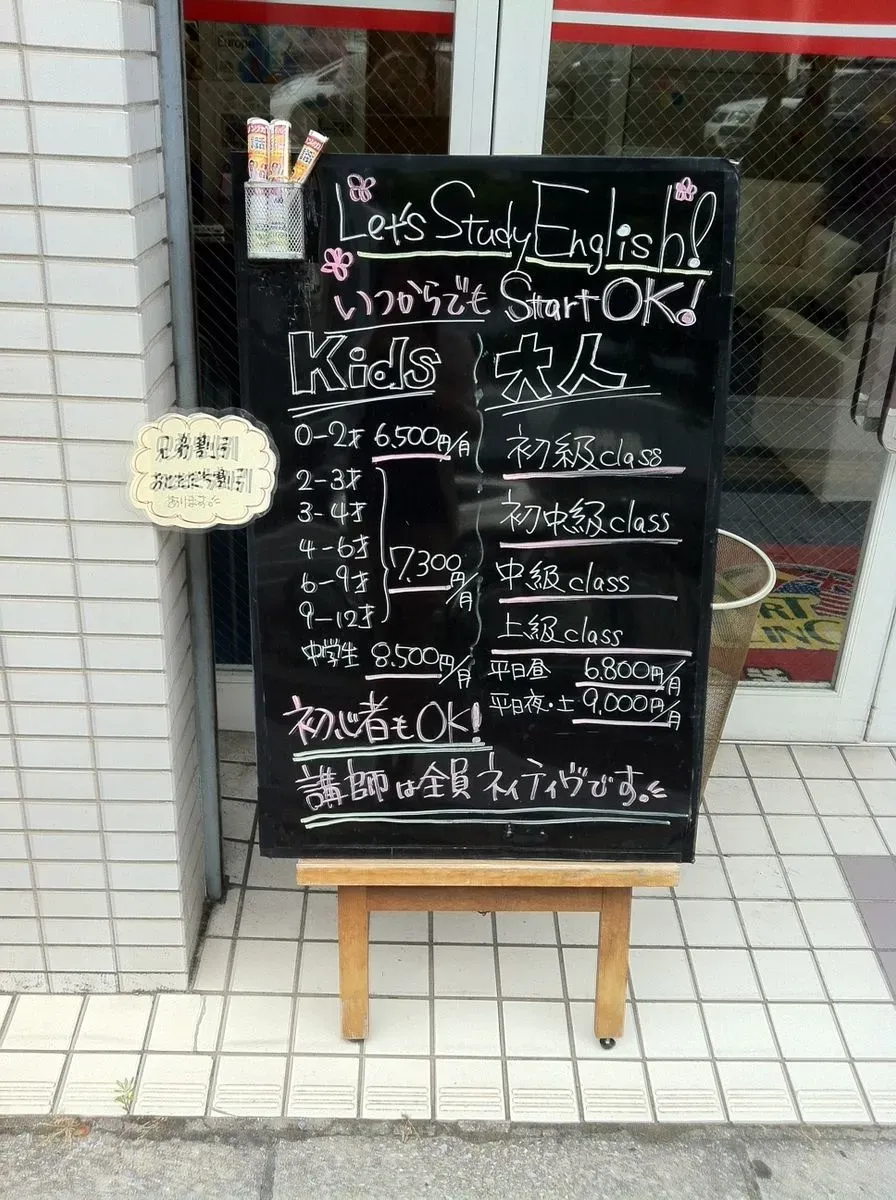 Let's Study English!
いつからでも Start OK!
Kids
0-2才 6,500円/月
2-3才
3-4才
4-6才
6-9才
9-12才
7,300円/月
中学生 8,500円/月
大人
初級class
初中級class
中級class
上級class
平日昼 6,800円/月
平日夜・土 9,000円/月
初心者もOK!
講師は全員ネイティヴです。
兄弟割引
おともだち割引
あります。
Europe